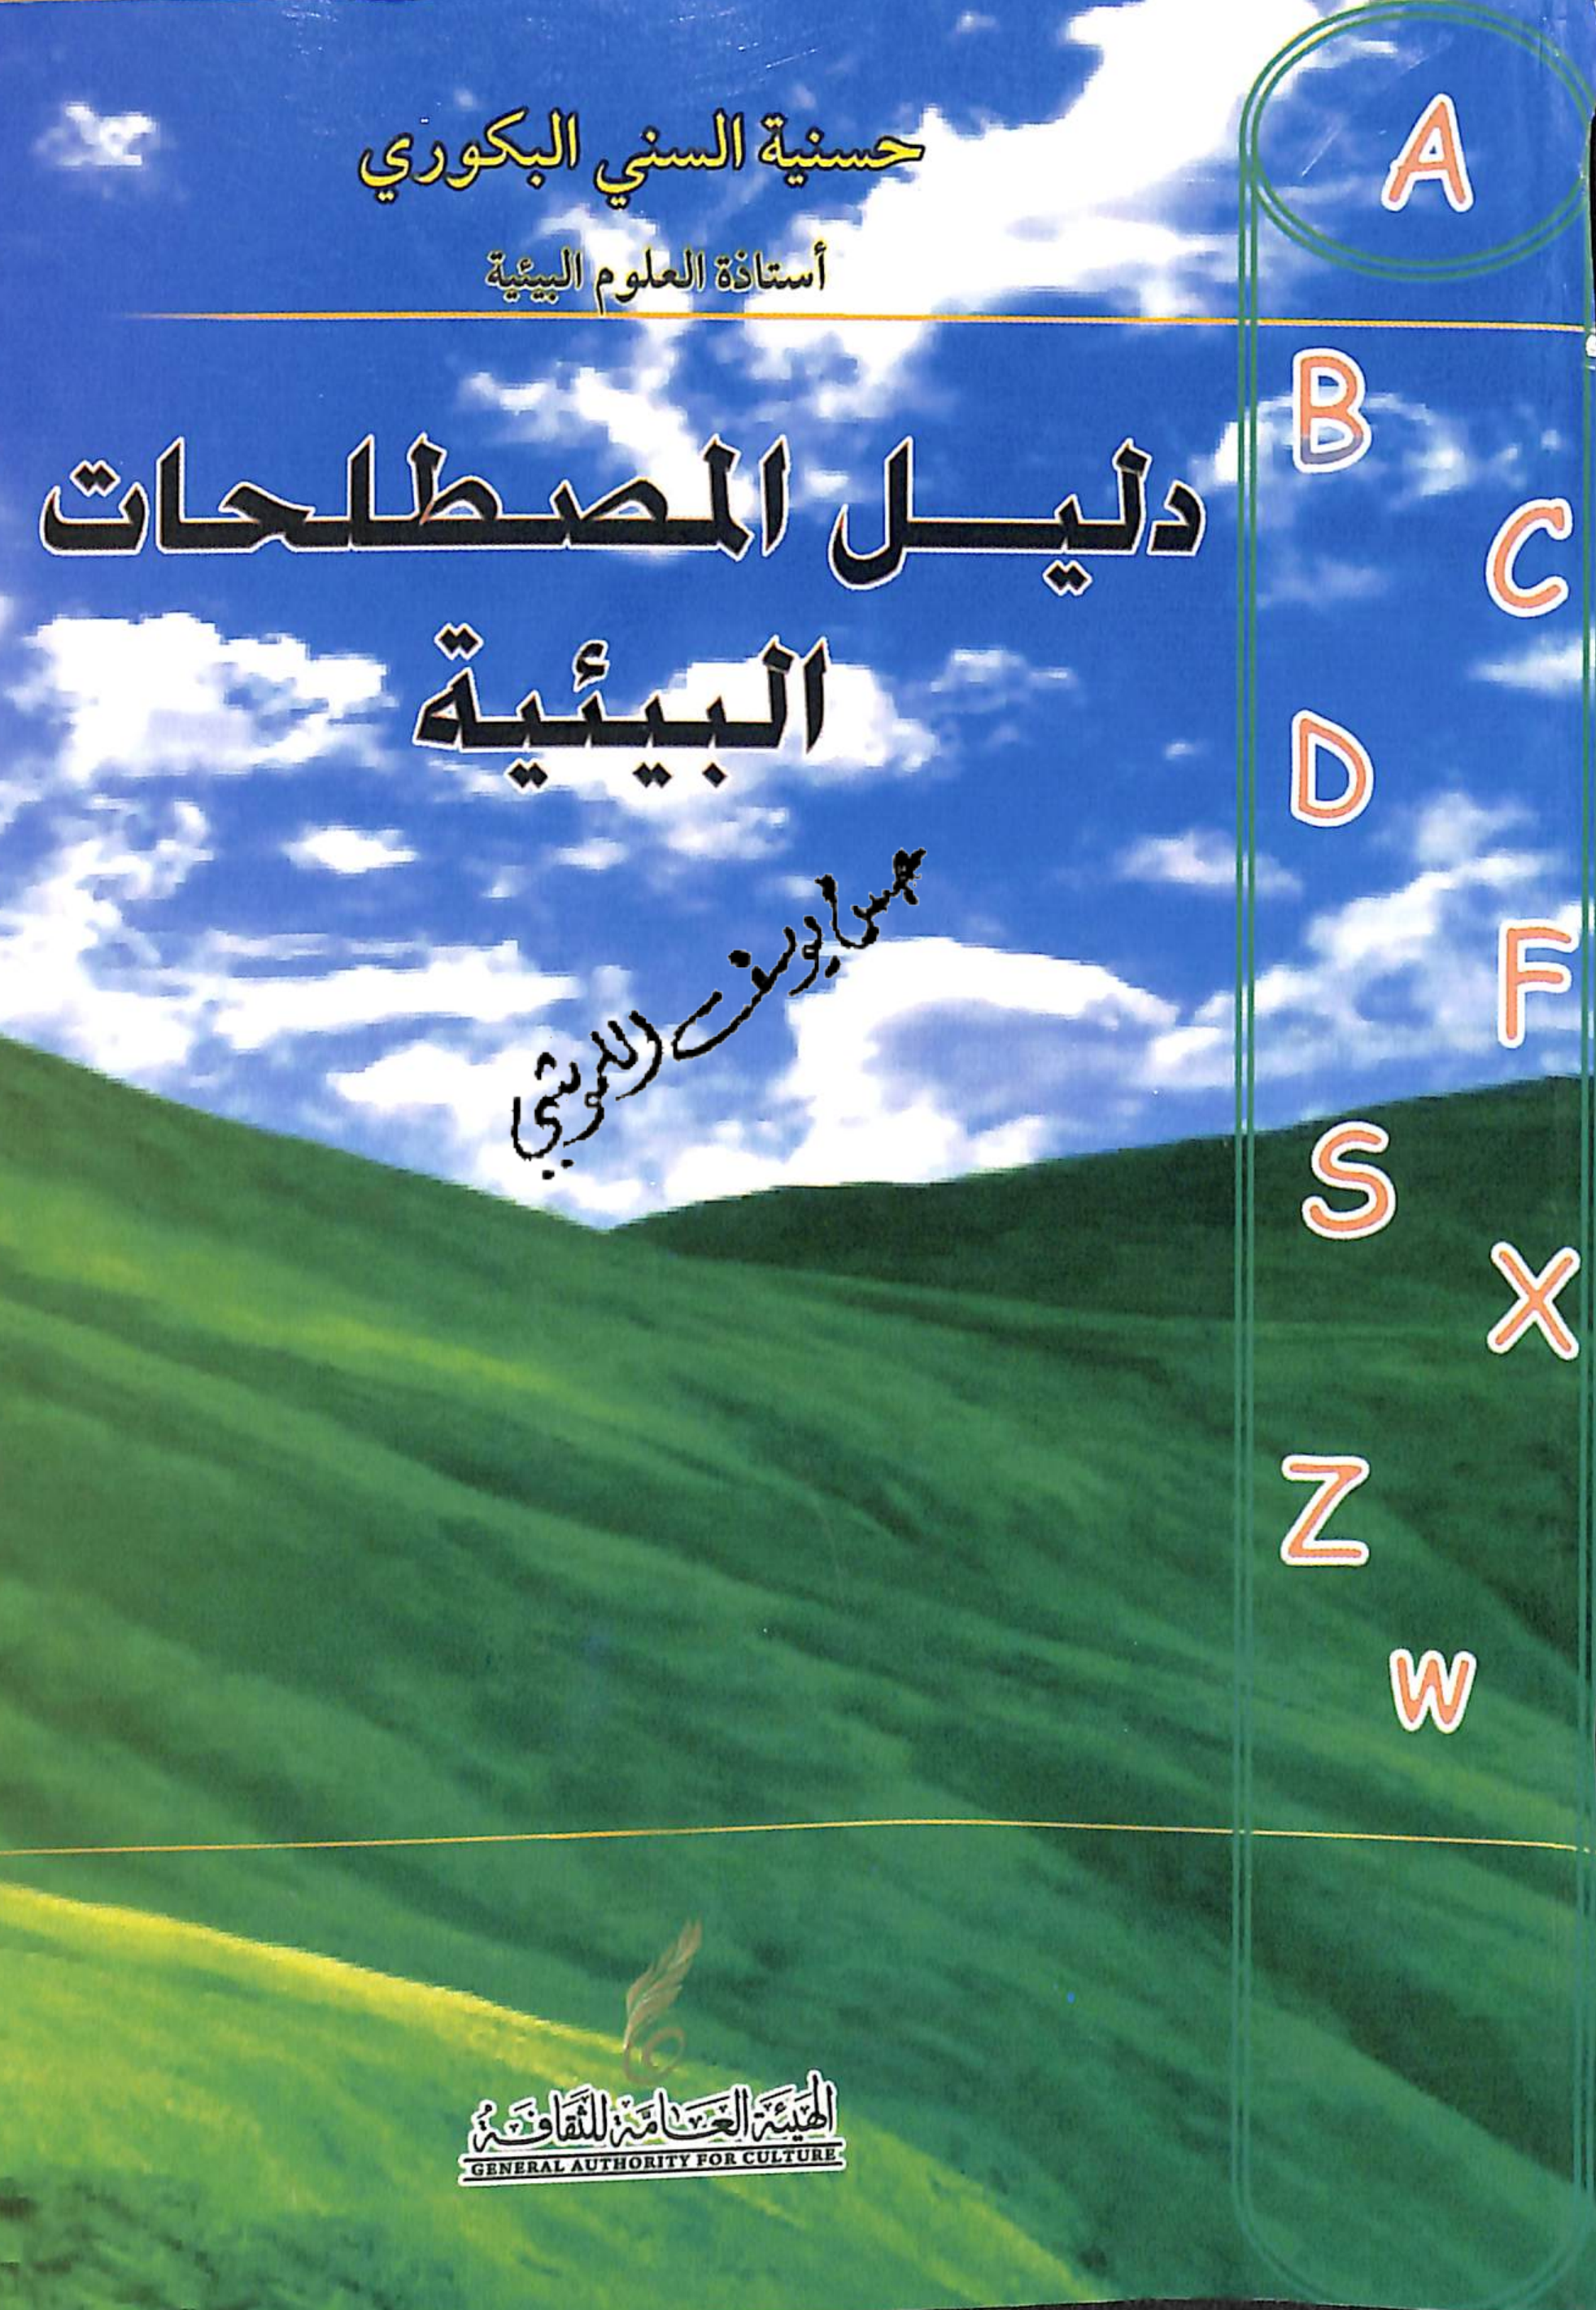 حسنية السني البكوري
أستاذة العلوم البيئية
دليل المصطلحات
البيئية
A
B
C
D
F
S
X
Z
w
الهيئة العامة للثقافة
GENERAL AUTHORITY FOR CULTURE